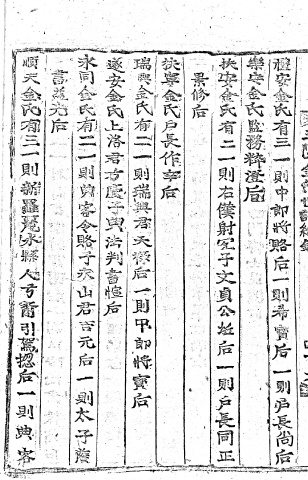 禮安金氏有三一則中郎將賂后一則希實后一則戶長尚后
樂安金氏監務粹澄后
扶安金氏有二一則右僕射冠子文貞公坵后一則戶長同正
景修后
扶寧金氏戶長作辛后
瑞興金氏有二一則瑞興君天祿后一則中郎將寶后
遂安金氏上洛君方慶子典法判書愃后
永同金氏有二一則典客令賂子永山君吉元后一則太子詹
書益光后
順天金氏有三一則新羅麗水縣人方奮引駕摠后一則典客